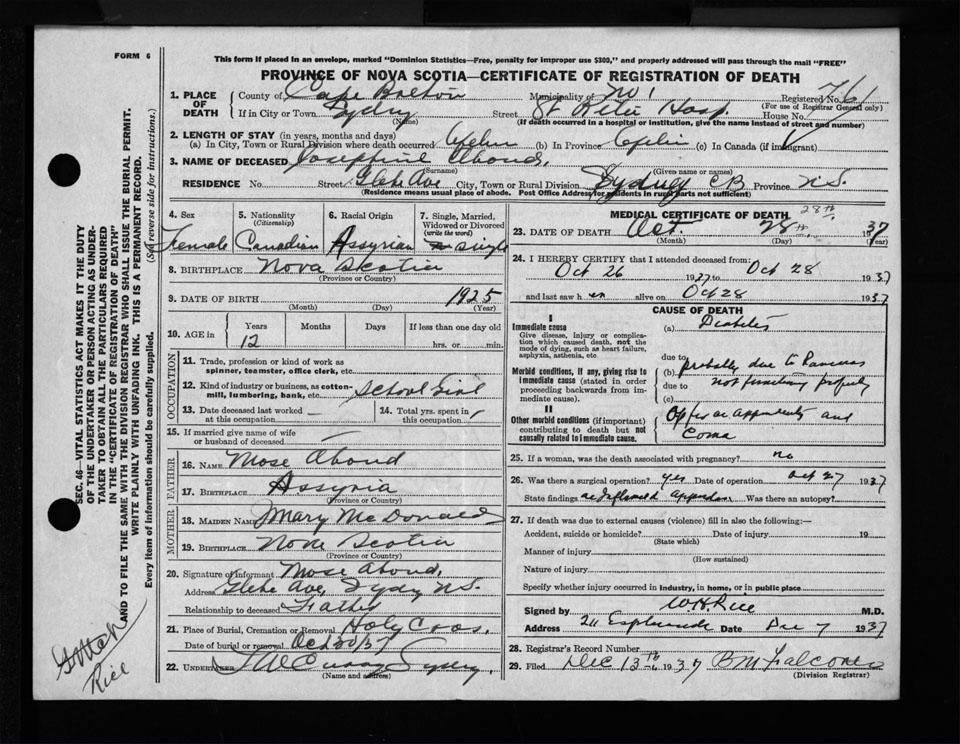 FORM 6
This form if placed in an envelope, marked "Dominion Statistics—Free, penalty for improper use $300," and properly addressed will pass through the mail "FREE"
PROVINCE OF NOVA SCOTIA—CERTIFICATE OF REGISTRATION OF DEATH
1. PLACE OF DEATH County of Cape Breton Municipality of No 1 Registered No. 761
(For use of Registrar General only)
If in City or Town Sydney Street St Rita Hosp House No.
(Name) (If death occurred in a hospital or institution, give the name instead of street and number)
2. LENGTH OF STAY (in years, months and days)
(a) In City, Town or Rural Division where death occurred (b) In Province (c) In Canada (if immigrant)
3. NAME OF DECEASED Josephine Aboud,
(Surname) (Given name or names)
RESIDENCE No. Street Glebe Ave City, Town or Rural Division Sydney CB Province N.S.
(Residence means usual place of abode. Post Office Address for residents in rural parts not sufficient)
4. Sex Female
5. Nationality (Citizenship) Canadian
6. Racial Origin Assyrian
7. Single, Married, Widowed or Divorced (write the word) single
8. BIRTHPLACE Nova Scotia
(Province or Country)
9. DATE OF BIRTH 1925
(Month) (Day) (Year)
10. AGE in Years Months Days If less than one day old
12 hrs. or min.
OCCUPATION
11. Trade, profession or kind of work as spinner, teamster, office clerk, etc.
12. Kind of industry or business, as cotton-mill, lumbering, bank, etc. School Girl
13. Date deceased last worked at this occupation
14. Total yrs. spent in this occupation
15. If married give name of wife or husband of deceased
FATHER
16. NAME Mose Aboud
17. BIRTHPLACE Assyria
(Province or Country)
MOTHER
18. MAIDEN NAME Mary McDonald
19. BIRTHPLACE Nova Scotia
(Province or Country)
20. Signature of informant Mose Aboud,
Address Glebe Ave, Sydney N.S.
Relationship to deceased Father
21. Place of Burial, Cremation or Removal Holy Cross,
Date of burial or removal Oct 30/37
22. UNDERTAKER Sydney.
(Name and address)
MEDICAL CERTIFICATE OF DEATH
28th
23. DATE OF DEATH Oct. 28th, 1937
(Month) (Day) (Year)
24. I HEREBY CERTIFY that I attended deceased from:
Oct 26 1937 to Oct 28 1937
and last saw her alive on Oct 28 1937
CAUSE OF DEATH
I
Immediate cause
Give disease, injury or complication which caused death, not the mode of dying, such as heart failure, asphyxia, asthenia, etc
(a) Diabetes
due to
Morbid conditions, if any, giving rise to immediate cause (stated in order proceeding backwards from immediate cause).
(b) probably due to Pancreas
due to not functioning properly
(c)
II
Other morbid conditions (if important) contributing to death but not causally related to immediate cause.
Oper on appendicitis and
Coma
25. If a woman, was the death associated with pregnancy? no
26. Was there a surgical operation? yes Date of operation Oct 27 1937
State findings Was there an autopsy?
27. If death was due to external causes (violence) fill in also the following:—
Accident, suicide or homicide? Date of injury 19
(State which)
Manner of injury
(How sustained)
Nature of injury
Specify whether injury occurred in industry, in home, or in public place
Signed by W H Rice M.D.
Address 211 Esplanade Date Dec 7 1937
28. Registrar's Record Number
29. Filed Dec 13th 1937 B M Falconer
(Division Registrar)
SEC. 46—VITAL STATISTICS ACT MAKES IT THE DUTY
OF THE UNDERTAKER OR PERSON ACTING AS UNDERTAKER
TO OBTAIN ALL THE PARTICULARS REQUIRED
IN THE "CERTIFICATE OF REGISTRATION OF DEATH"
AND TO FILE THE SAME WITH THE DIVISION REGISTRAR WHO SHALL ISSUE THE BURIAL PERMIT.
WRITE PLAINLY WITH UNFADING INK. THIS IS A PERMANENT RECORD.
Every item of information should be carefully supplied. (See reverse side for instructions.)
Rice